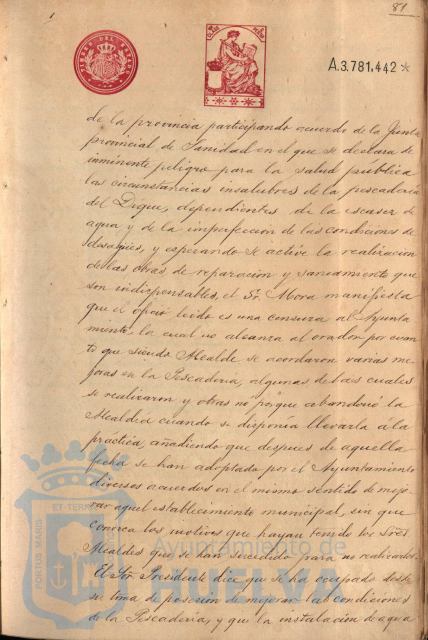 81
A.3.781.442*
TIMBRE DEL ESTADO
de la provincia participando acuerdo de la Junta
provincial de Sanidad en el que se declara de
inminente peligro para la salud pública
las circunstancias insalubres de la pescadería
del Dique, dependientes de la escasez de
agua y de la imperfección de las condiciones de
desagües, y esperando se active la realización
de las obras de reparación y saneamiento que
son indispensables, el Sr. Mora manifiesta
que el oficio leído es una censura al Ayunta
miento, la cual no alcanza al orador por cuan
to que siendo Alcalde se acordaron varias me
joras en la Pescadería, algunas de las cuales
se realizaron y otras no porque abandonó la
Alcaldía cuando se disponía llevarla a la
práctica, añadiendo que despues de aquella
fecha se han adoptado por el Ayuntamiento
diversos acuerdos en el mismo sentido de mejo
rar aquel establecimiento municipal, sin que
conozca los motivos que hayan tenido los Sres.
Alcaldes que se han sucedido para no realizarlos.
El Sr. Presidente dice que se ha ocupado desde
su toma de posesión de mejorar las condiciones
de la Pescadería, y que la instalación de agua
PORTUS MARIS ET TERRAE
Ayuntamiento de
HUELVA